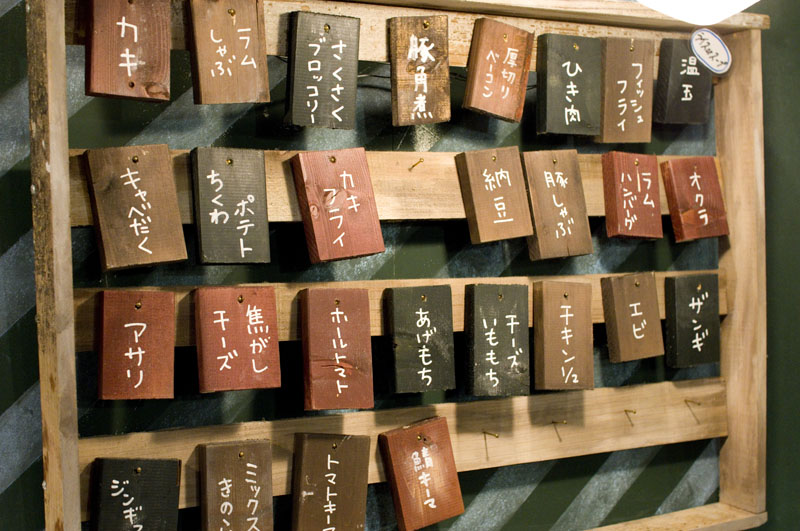 カキ
ラム
しゃぶ
さくさく
ブロッコリー
豚角煮
厚切り
ベーコン
ひき肉
フィッシュ
フライ
温玉
キャベだく
ちくわ
ポテト
カキ
フライ
納豆
豚しゃぶ
ラム
ハンバーグ
オクラ
アサリ
焦がし
チーズ
ホールトマト
あげもち
チーズ
いももち
チキン1/2
エビ
ザンギ
ジンギス
ミックス
きのこ
トマトキーマ
鯖キーマ